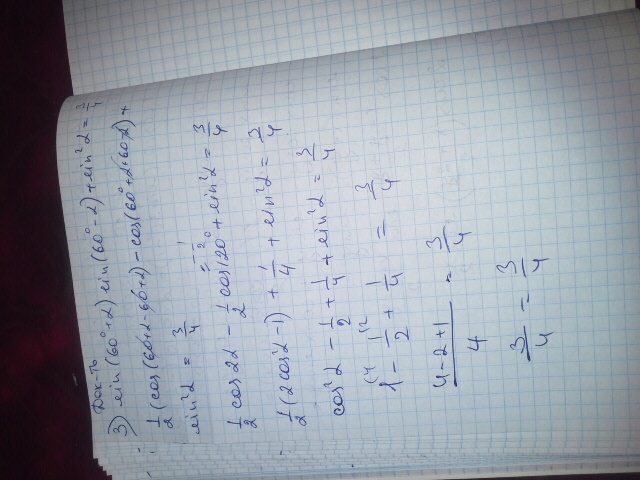 Док-ть
3) sin(60°+α) sin(60°-α)+sin²α = 3/4
1/2 (cos(60+α-60+α) - cos(60°+α+60-α)) +
sin²α = 3/4
1/2 cos 2α - 1/2 cos 120° + sin²α = 3/4
= -1/2
1/2 (2cos²α-1) + 1/4 + sin²α = 3/4
cos²α - 1/2 + 1/4 + sin²α = 3/4
1 - 1/2 + 1/4 = 3/4
(4-2+1)/4 = 3/4
3/4 = 3/4